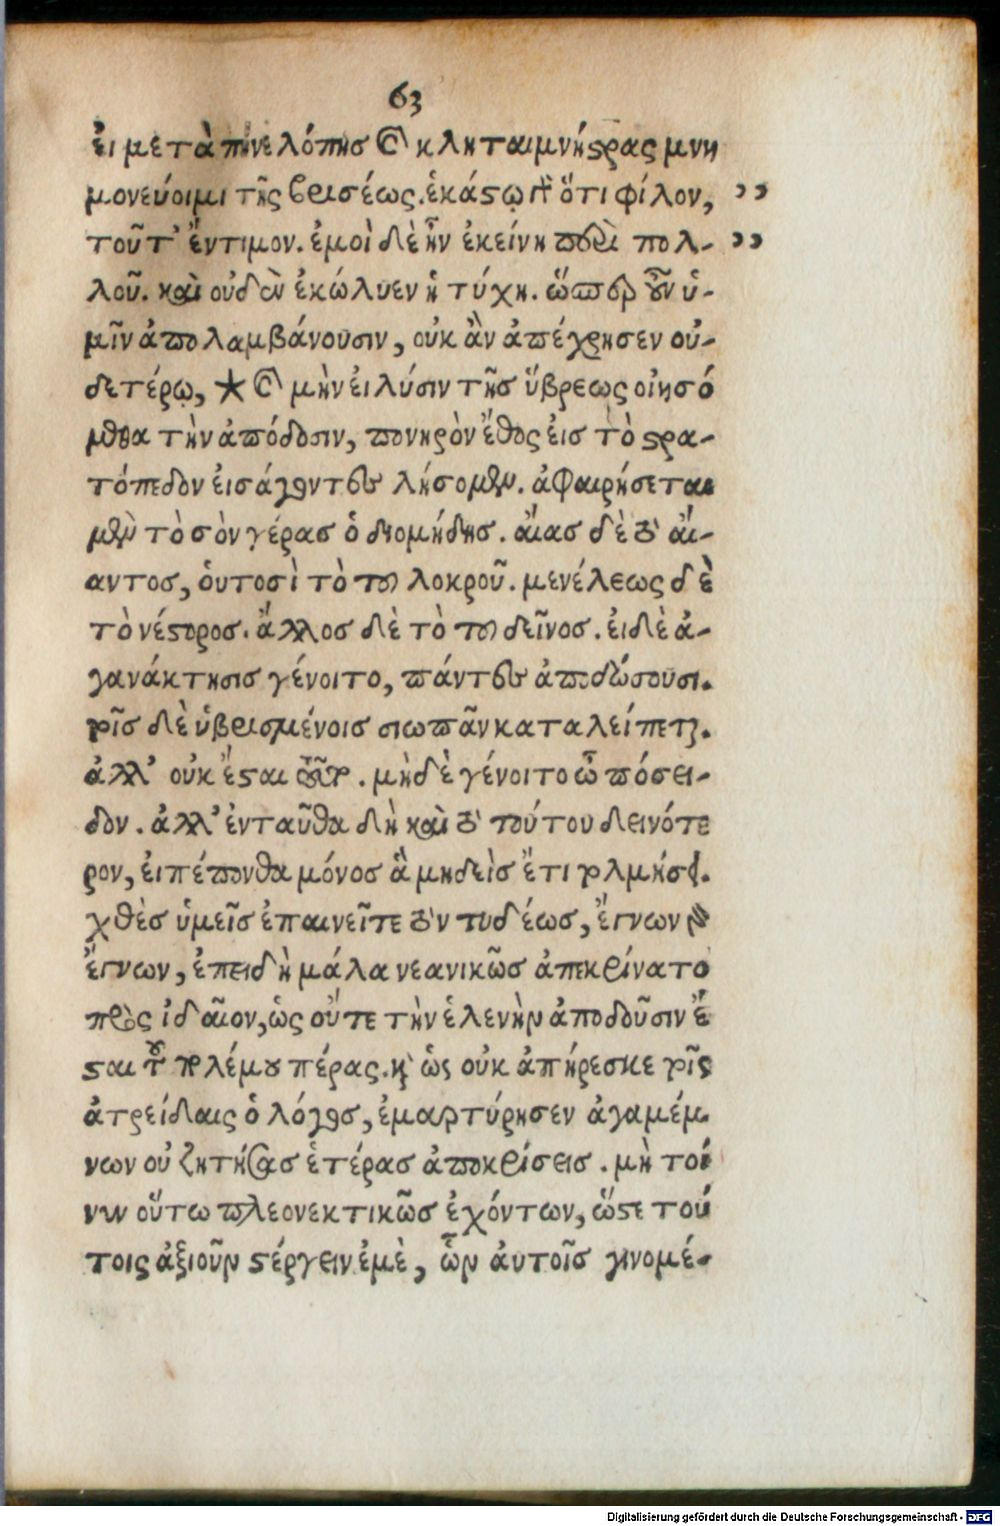 63
ἐι μετὰ πηνελόπης καὶ κληταιμνήστρας μνη
μονεύοιμι τῆς βρισέως. ἑκάστῳ γὰρ ὅτι φίλον, ,,
τοῦτ' ἔντιμον. ἐμοὶ δὲ ἦν ἐκείνη περὶ πολ- ,,
λοῦ. καὶ οὐδὲν ἐκώλυεν ἡ τύχη. ὥσπερ οὖν ὑ-
μῖν ἀπολαμβάνουσιν, οὐκ ἂν ἀπέχρησεν οὐ-
δετέρῳ, * καὶ μὴν ἐι λύσιν τῆς ὕβρεως οἰησό
μεθα τὴν ἀπόδοσιν, πονηρὸν ἔθος ἐις τὸ στρα-
τόπεδον ἐισάγοντες λήσομεν. ἀφαιρήσεται
μὲν τὸ σὸν γέρας ὁ διομήδης. ἄιας δὲ τὸ ἄι-
αντος, ὁυτοσὶ τὸ τοῦ λοκροῦ. μενέλεως δὲ
τὸ νέστορος. ἄλλος δὲ τὸ τοῦ δεῖνος. ἐι δὲ ἀ-
γανάκτησις γένοιτο, πάντες ἀποδώσουσι.
τοῖς δὲ ὑβρισμένοις σιωπᾶν καταλείπεται.
ἀλλ' οὐκ ἔσται ταῦτα. μὴ δὲ γένοιτο ὦ πόσει-
δον. ἀλλ' ἐνταῦθα δὴ καὶ τὸ τούτου δεινότε
ρον, ἐι πέπονθα μόνος ἃ μηδεὶς ἔτι τολμήσει.
χθὲς ὑμεῖς ἐπαινεῖτε τὸν τυδέως, ἔγνων
ἔγνων, ἐπειδὴ μάλα νεανικῶς ἀπεκρίνατο
πρὸς ἰδαῖον, ὡς οὔτε τὴν ἑλενὴν ἀποδοῦσιν ἔ
σται τοῦ πολέμου πέρας. καὶ ὡς οὐκ ἀπήρεσκε τοῖς
ἀτρείδαις ὁ λόγος, ἐμαρτύρησεν ἀγαμέμ
νων οὐ ζητήσας ἑτέρας ἀποκρίσεις. μὴ τοί
νυν οὕτω πλεονεκτικῶς ἐχόντων, ὥστε τού
τοις ἀξιοῦν στέργειν ἐμὲ, ὧν ἀυτοῖς γινομέ-
Digitalisierung gefördert durch die Deutsche Forschungsgemeinschaft - DFG